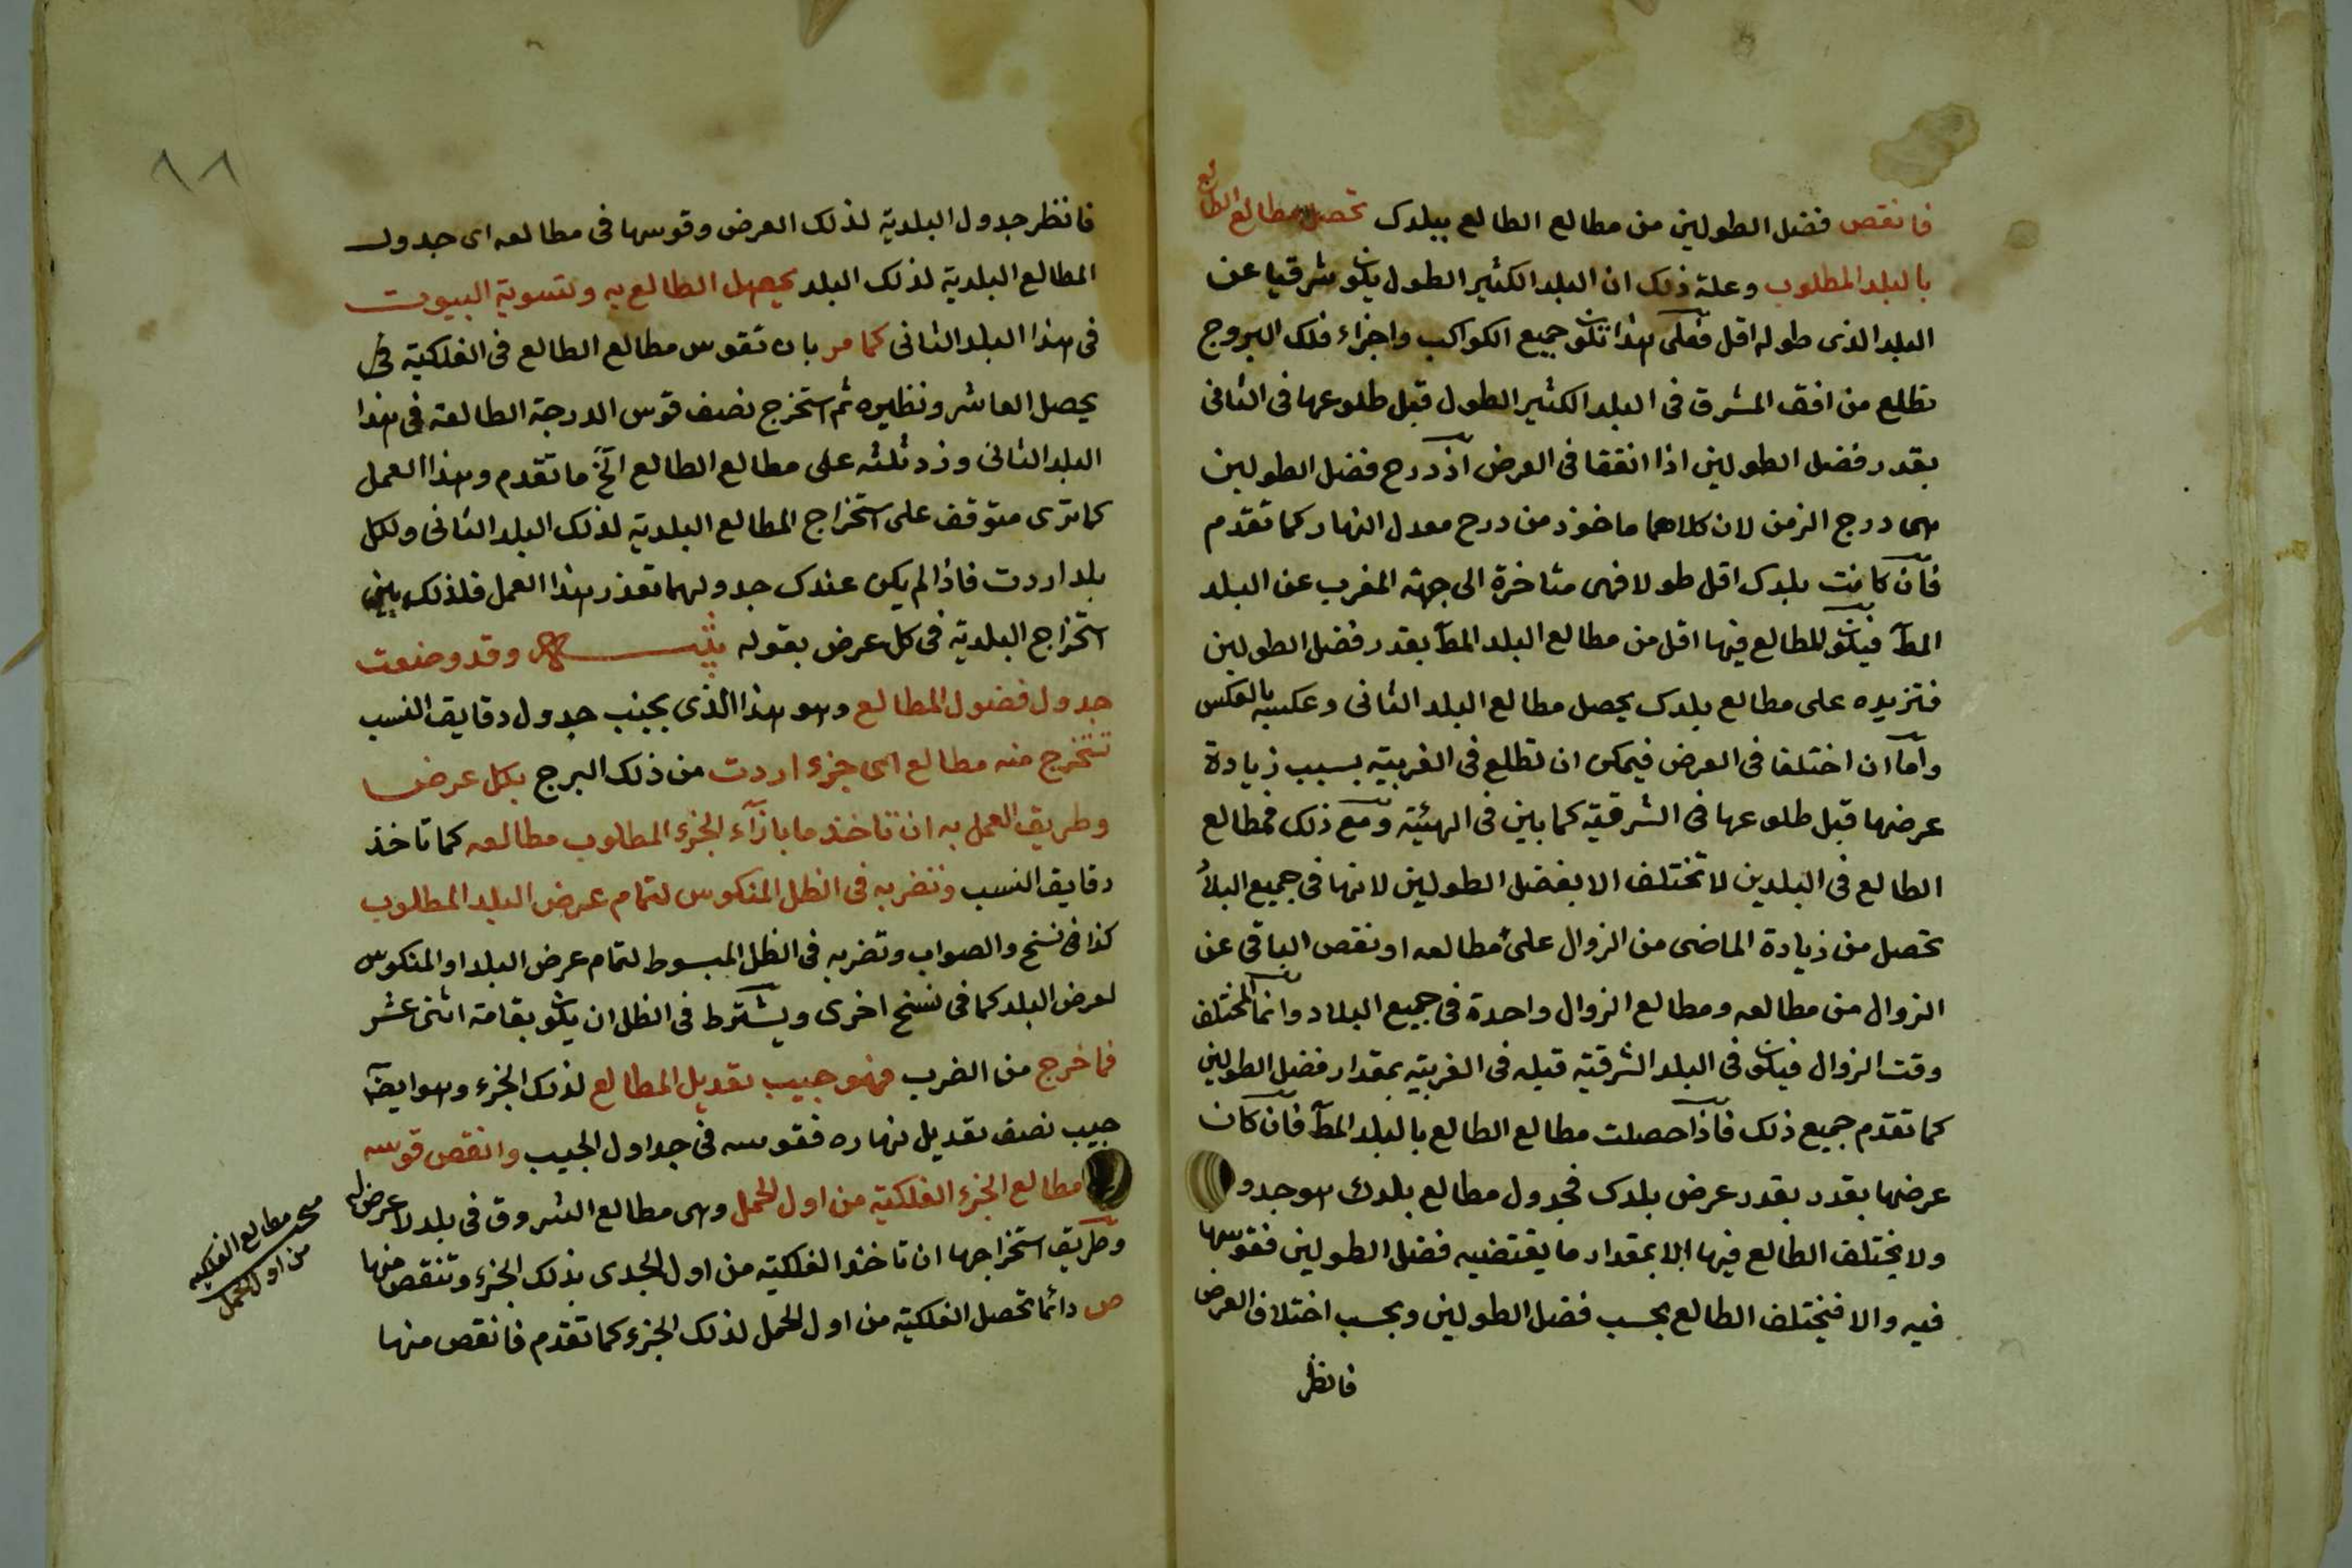 فانقص فضل الطولين من مطالع الطالع ببلدك تحصل مطالع الطالع
بالبلد المطلوب وعلة ذلك ان البلد الكثير الطول يكون شرقيا عن
البلد الذى طوله اقل فعلى هذا تكون جميع الكواكب واجزاء فلك البروج
تطلع من افق المشرق فى البلد الكثير الطول قبل طلوعها فى الثانى
بقدر فضل الطولين اذا اتفقا فى العرض اذ درج فضل الطولين
هى درج الزمن لان كلاهما ماخوذ من درج معدل النهار كما تقدم
فان كانت بلدك اقل طولا فهى متاخرة الى جهة المغرب عن البلد
المط فيكون المطالع فيها اقل من مطالع البلد المط بقدر فضل الطولين
فتزيده على مطالع بلدك يحصل مطالع البلد الثانى وعكسه بالعكس
واما ان اختلفا فى العرض فيمكن ان تطلع فى الغربية بسبب زيادة
عرضها قبل طلوعها فى الشرقية كما بين فى الهيئة ومع ذلك فمطالع
الطالع فى البلدين لا تختلف الا بفضل الطولين لانها فى جميع البلاد
تحصل من زيادة الماضى من الزوال على مطالعه او نقص الباقى عن
الزوال من مطالعه ومطالع الزوال واحدة فى جميع البلاد وانما المختلف
وقت الزوال فيكون فى البلد الشرقية قبله فى الغربية بمقدار فضل الطولين
كما تقدم جميع ذلك فاذا حصلت مطالع الطالع بالبلد المط فان كان
عرضها بقدر بقدر عرض بلدك فجدول مطالع بلدك هو جدو
ولا يختلف الطالع فيها الا بمقدار ما يقتضيه فضل الطولين فقوسها
فيه والا فيختلف الطالع بحسب فضل الطولين وبحسب اختلاف العرض
فانظر
٩٨
فانظر جدول البلدية لذلك العرض وقوسها فى مطالعه اى جدول
المطالع البلدية لذلك البلد يحصل الطالع به ولتسوية البيوت
فى هذا البلد الثانى كما مر بان تقوس مطالع الطالع فى الفلكية
يحصل العاشر ونظيره ثم استخرج نصف قوس الدرجة الطالعة فى هذا
البلد الثانى وزد ثلثه على مطالع الطالع الخ ما تقدم وهذا العمل
كما ترى متوقف على استخراج المطالع البلدية لذلك البلد الثانى ولكل
بلد اردت فاذا لم يكن عندك جدولهما تعذر هذا العمل فلذلك بين
استخراج البلدية فى كل عرض بقوله تنبيه وقد وضعت
جدول فضول المطالع وهو هذا الذى بجنب جدول دقايق النسب
تستخرج منه مطالع اى جزء اردت من ذلك البرج بكل عرض
وطريق العمل به ان تاخذ ما بازاء الجزء المطلوب مطالعه كما تاخذ
دقايق النسب وتضربه فى الظل المنكوس لتمام عرض البلد المطلوب
كذا فى نسخ والصواب وتضربه فى الظل المبسوط لتمام عرض البلد او المنكوس
لعرض البلد كما فى نسخ اخرى ويشترط فى الظل ان يكون بقامة اثنى عشر
فما خرج من الضرب فهو جيب تعديل المطالع لذلك الجزء وهو ايضا
جيب نصف تعديل نهاره فقوسه فى جداول الجيب وانقص قوسه
مطالع الجزء الفلكية من اول الحمل وهى مطالع الشروق فى بلد لا عرض له
وطريق استخراجها ان تاخذ الفلكية من اول الجدى بذلك الجزء وتنقص منها
ص دائما تحصل الفلكية من اول الحمل لذلك الجزء كما تقدم فانقص منها
مطالع الفلكيه
من اول الحمل